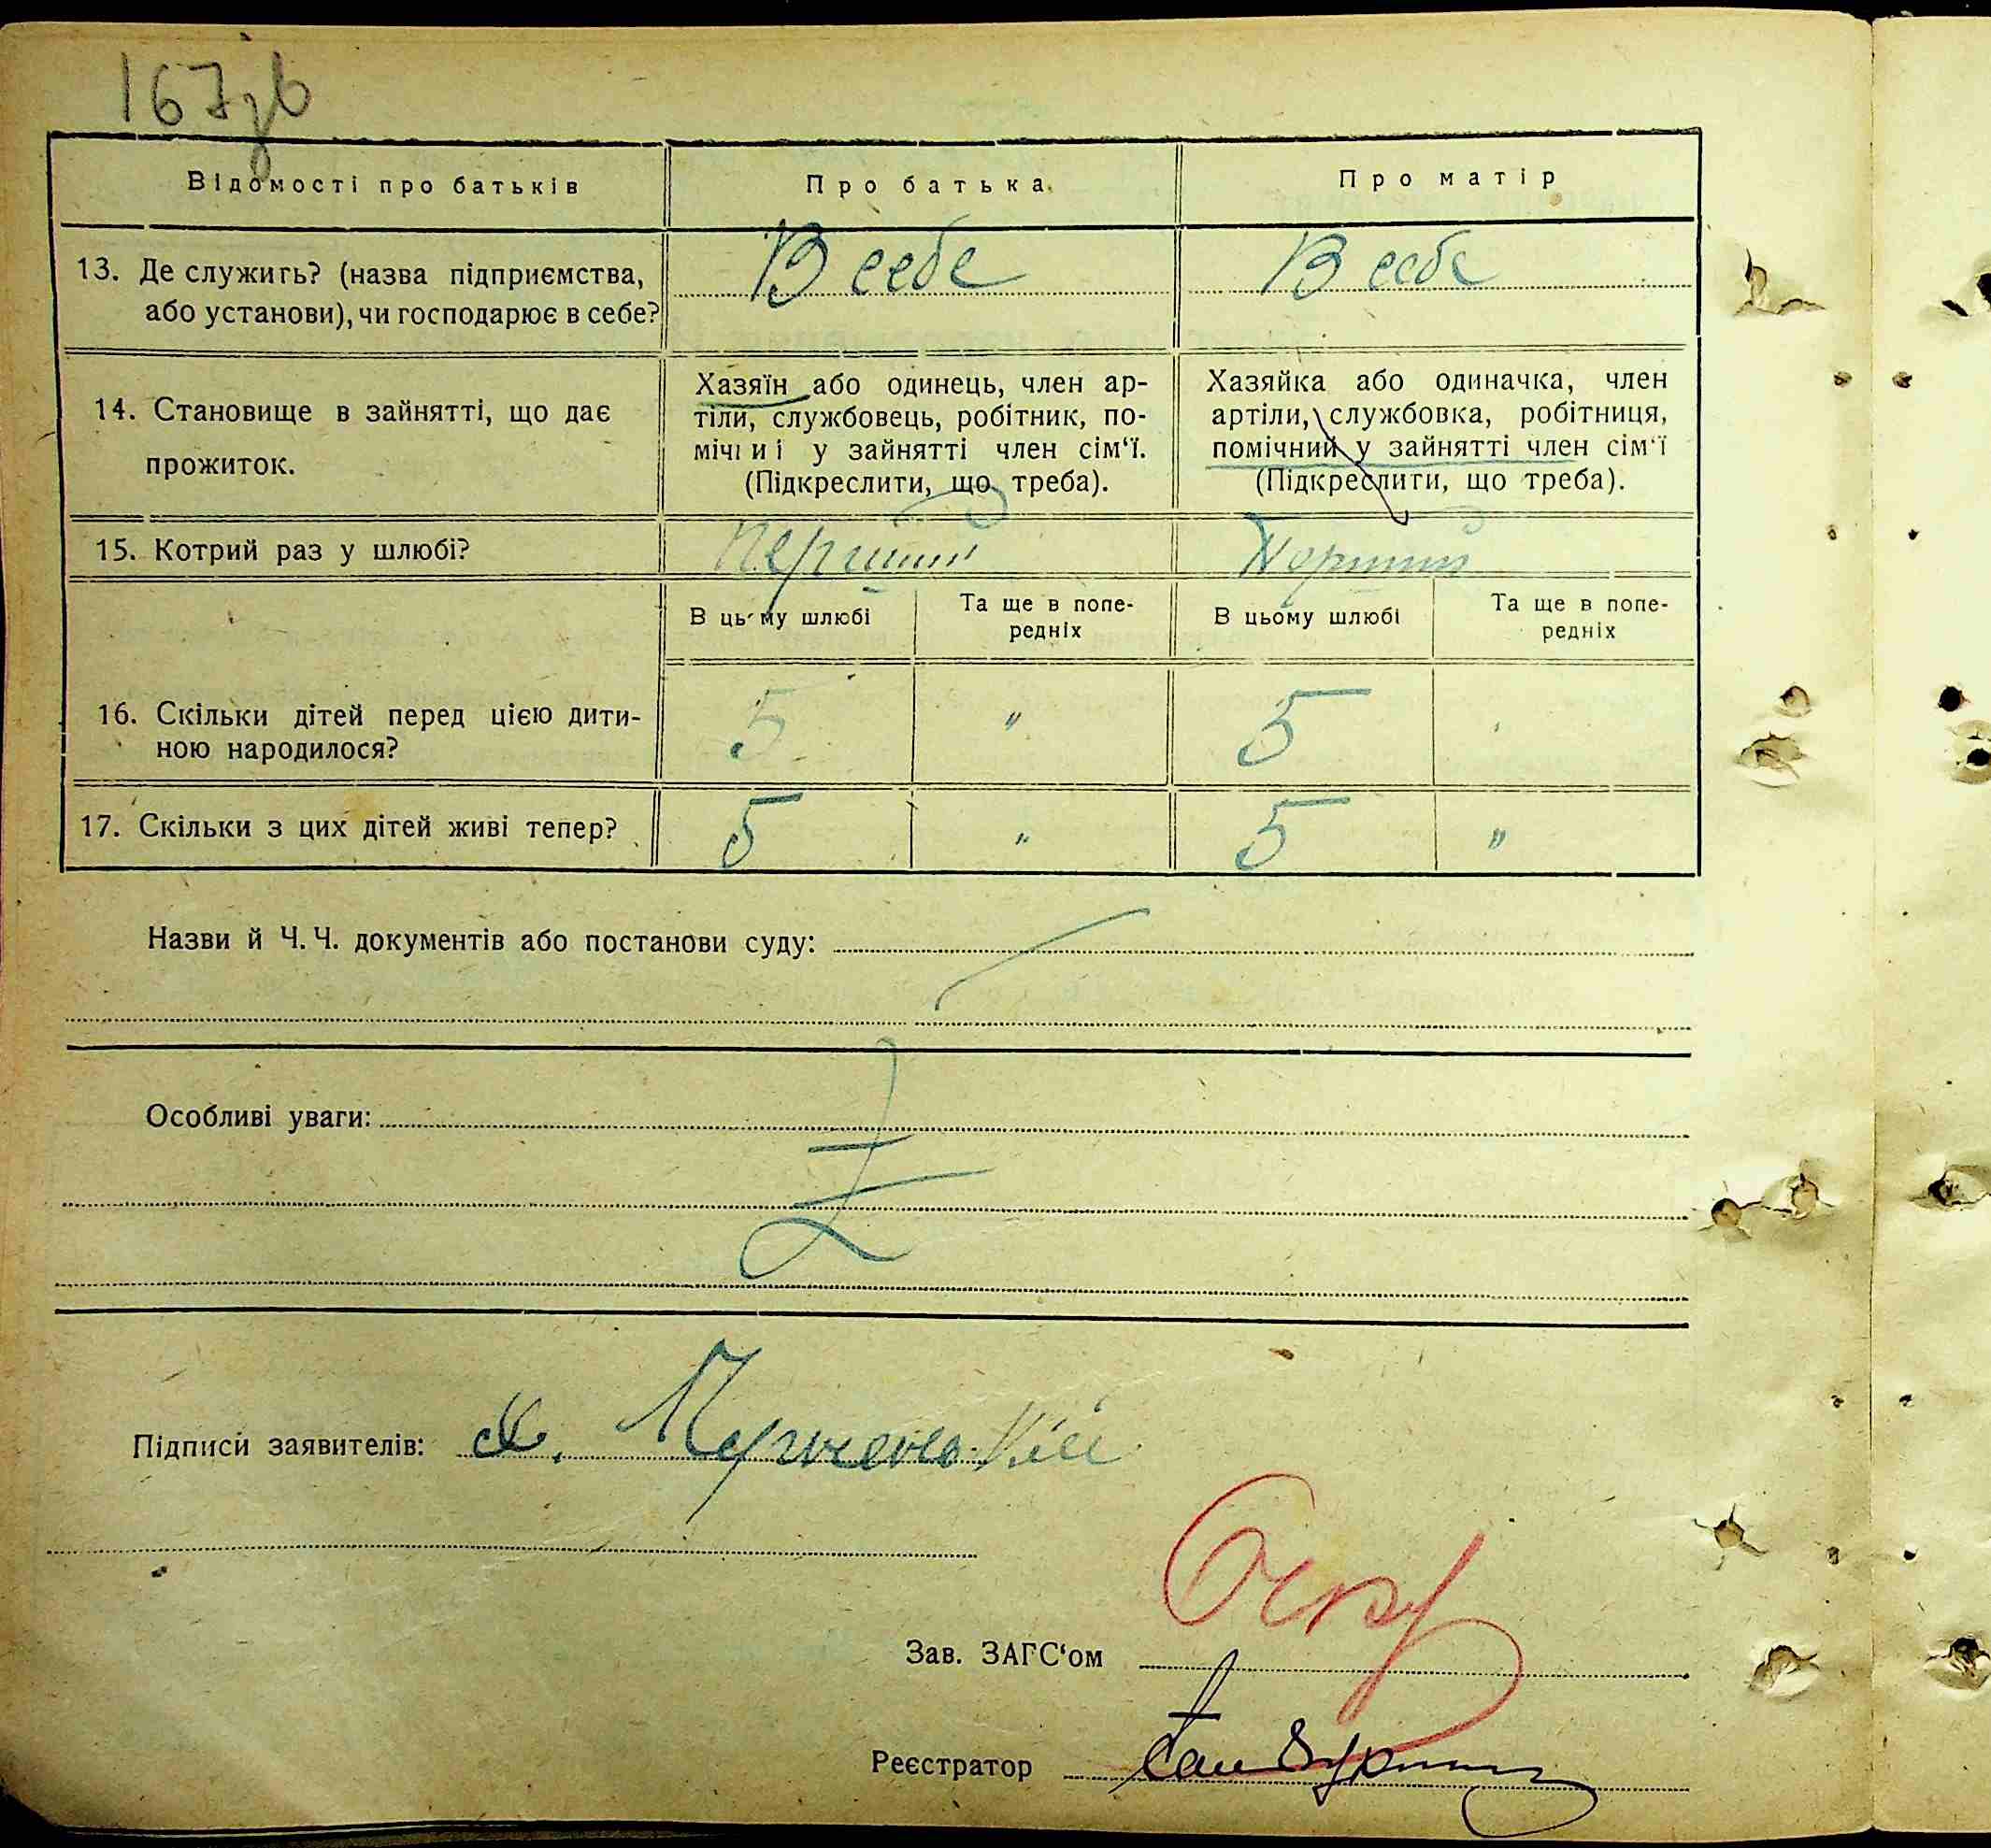 167зв
Відомості про батьків
Про батька
Про матір
13. Де служить? (назва підприємства,
або установи), чи господарює в себе?
В себе
В себе
14. Становище в зайнятті, що дає
прожиток.
Хазяїн або одинець, член ар-
тіли, службовець, робітник, по-
мічний у зайнятті член сім‘ї.
(Підкреслити, що треба).
Хазяйка або одиначка, член
артіли, службовка, робітниця,
помічний у зайнятті член сім‘ї
(Підкреслити, що треба).
15. Котрий раз у шлюбі?
Перший
Перший
В цьому шлюбі
Та ще в попе-
редніх
В цьому шлюбі
Та ще в попе-
редніх
16. Скільки дітей перед цією дити-
ною народилося?
5 " 5
17. Скільки з цих дітей живі тепер?
5 " 5 "
Назви й Ч. Ч. документів або постанови суду:
Особливі уваги:
Підписи заявителів:
Зав. ЗАГС‘ом
Реєстратор